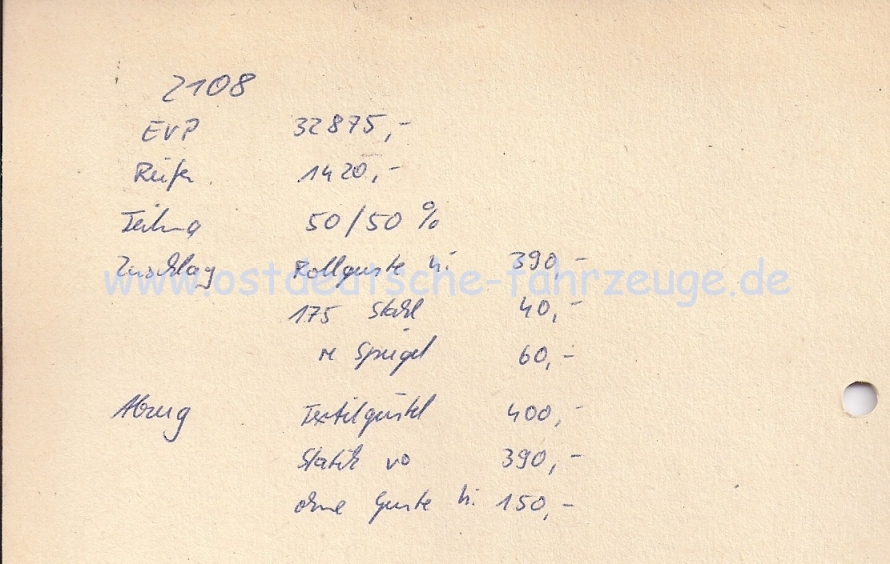 2108
EVP 32875,-
Reifen 1420,-
Teilung 50/50 %
Zuschlag Rollgurte hi. 390,-
www.ostdeutsche-fahrzeuge.de
175 Stahl 40,-
re Spiegel 60,-
Abzug Textilgürtel 400,-
Statik vo 390,-
ohne Gurte hi. 150,-